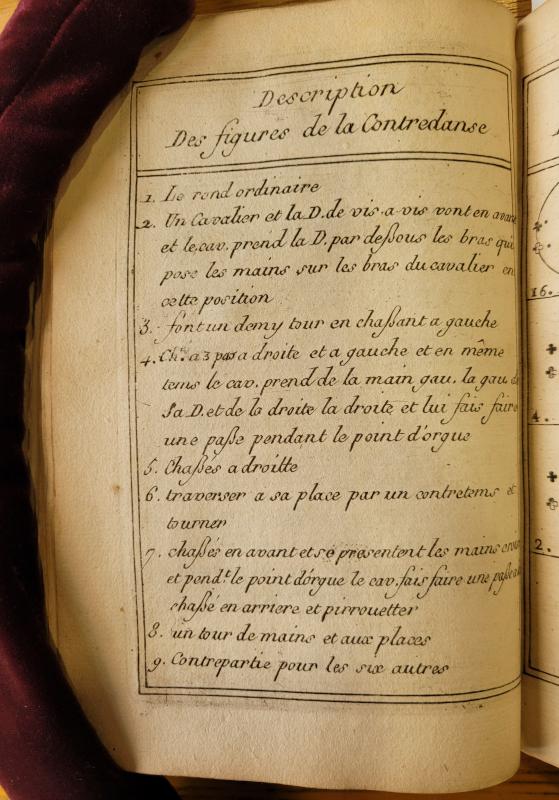 Description
Des figures de la Contredanse
1. Le rond ordinaire
2. Un Cavalier et la D. de vis.a.vis vont en avant
et le cav. prend la D. par deßous les bras qui
pose les mains sur les bras du cavalier en
cette position
3. font un demy tour en chaßant a gauche
4. Ch. a 3 pas a droite et a gauche et en même
tems le cav. prend de la main gau. la gau. de
Sa D. et de la droite la droite et lui fais faire
une paße pendant le point d'orgue
5. Chaßés a droitte
6. traverser a sa place par un contretems et
tourner
7. chaßés en avant et se presentent les mains
et pend.t le point d'orgue le cav. fais faire une paße
chaßé en arriere et pirrouetter
8. un tour de mains et aux places
9. Contrepartie pour les six autres
16.
4.
2.